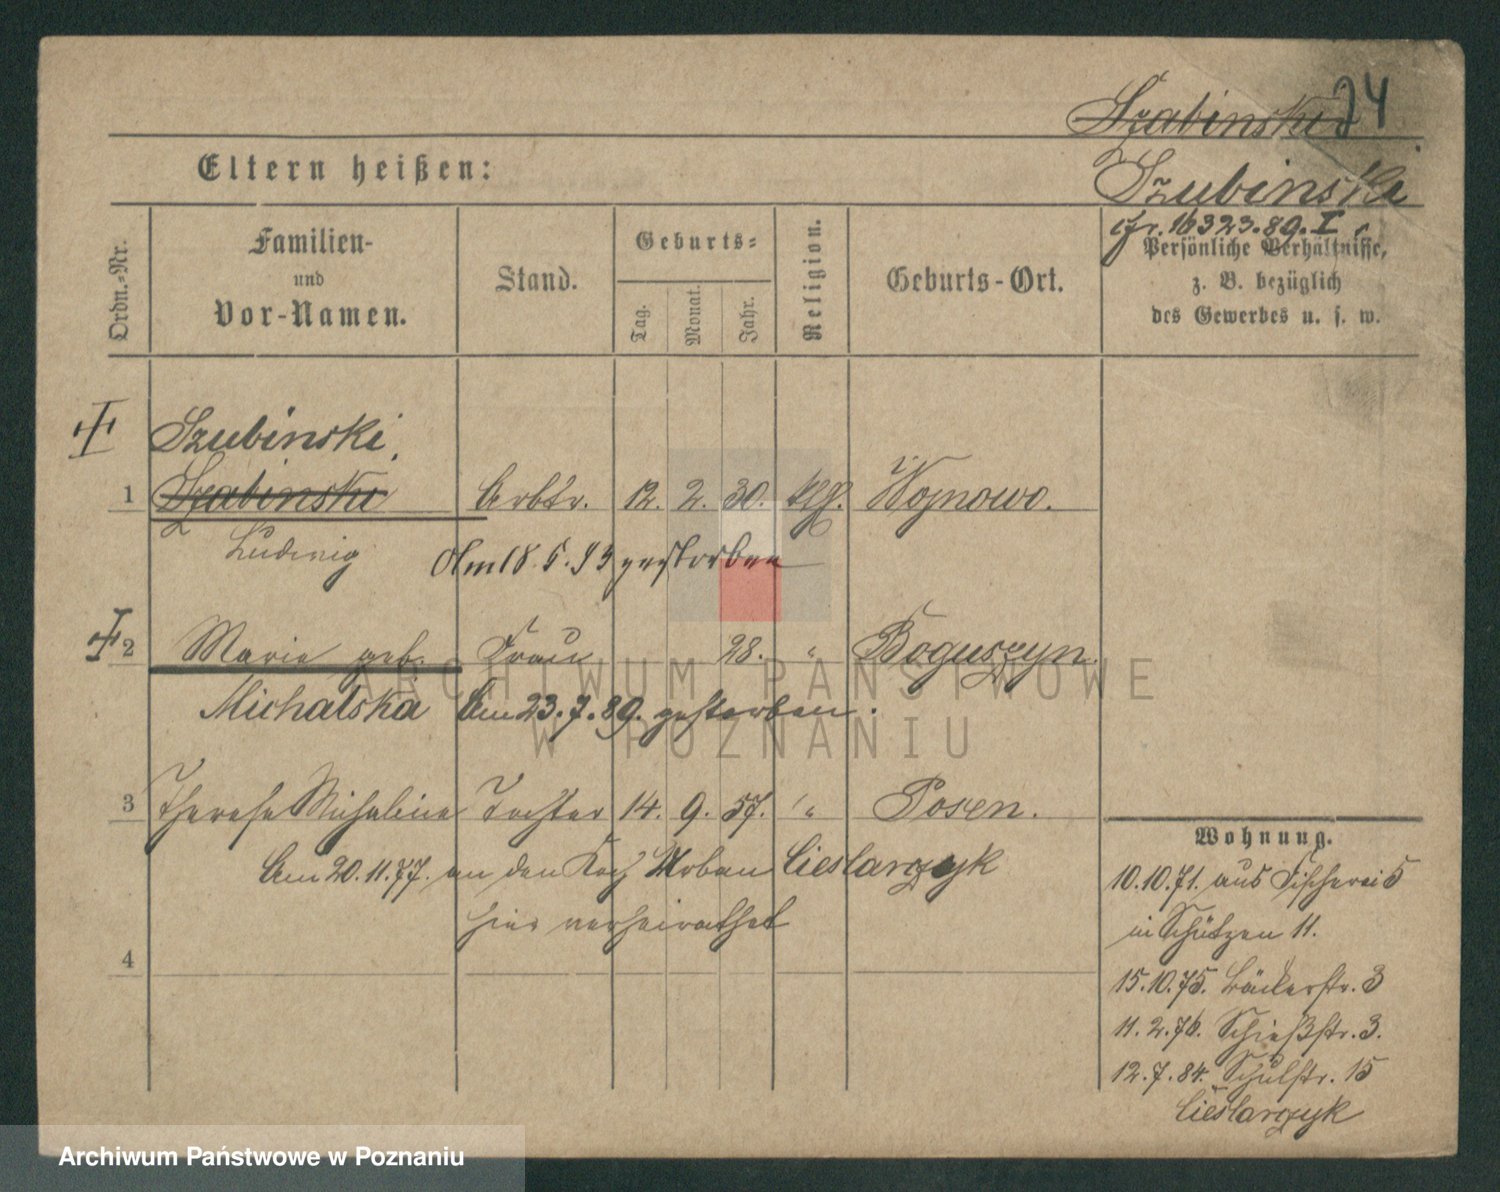 Szabinski 24
Eltern heißen:
Szubinski
Jr. 16323.89. I
Ordn.-Nr.
Familien-
und
Vor-Namen.
Stand.
Geburts-
Tag.
Monat.
Jahr.
Religion.
Geburts-Ort.
Persönliche Verhältnisse,
z. B. bezüglich
des Gewerbes u. s. w.
Szubinski,
1 Szabinski Arbtr. 12. 2. 30. klf. Wojnowo.
Ludwig Am 18. 5. 93 gestorben
2 Marie geb. Frau 28. " Boguszyn.
Michalska Am 23. 7. 89. gestorben.
3 Therese Michaline Tochter 14. 9. 57. " Posen.
Am 20. 11. 77. an den Koch Urban Cieslarczyk
hier verheirathet
4
Wohnung.
10.10.71. aus Fischerei 5
in Schützen 11.
15.10.75. Bäckerstr. 3
11.2.76. Schießstr. 3.
12.7.84. Schulstr. 15
Cieslarczyk
ARCHIWUM PAŃSTWOWE
W POZNANIU
Archiwum Państwowe w Poznaniu